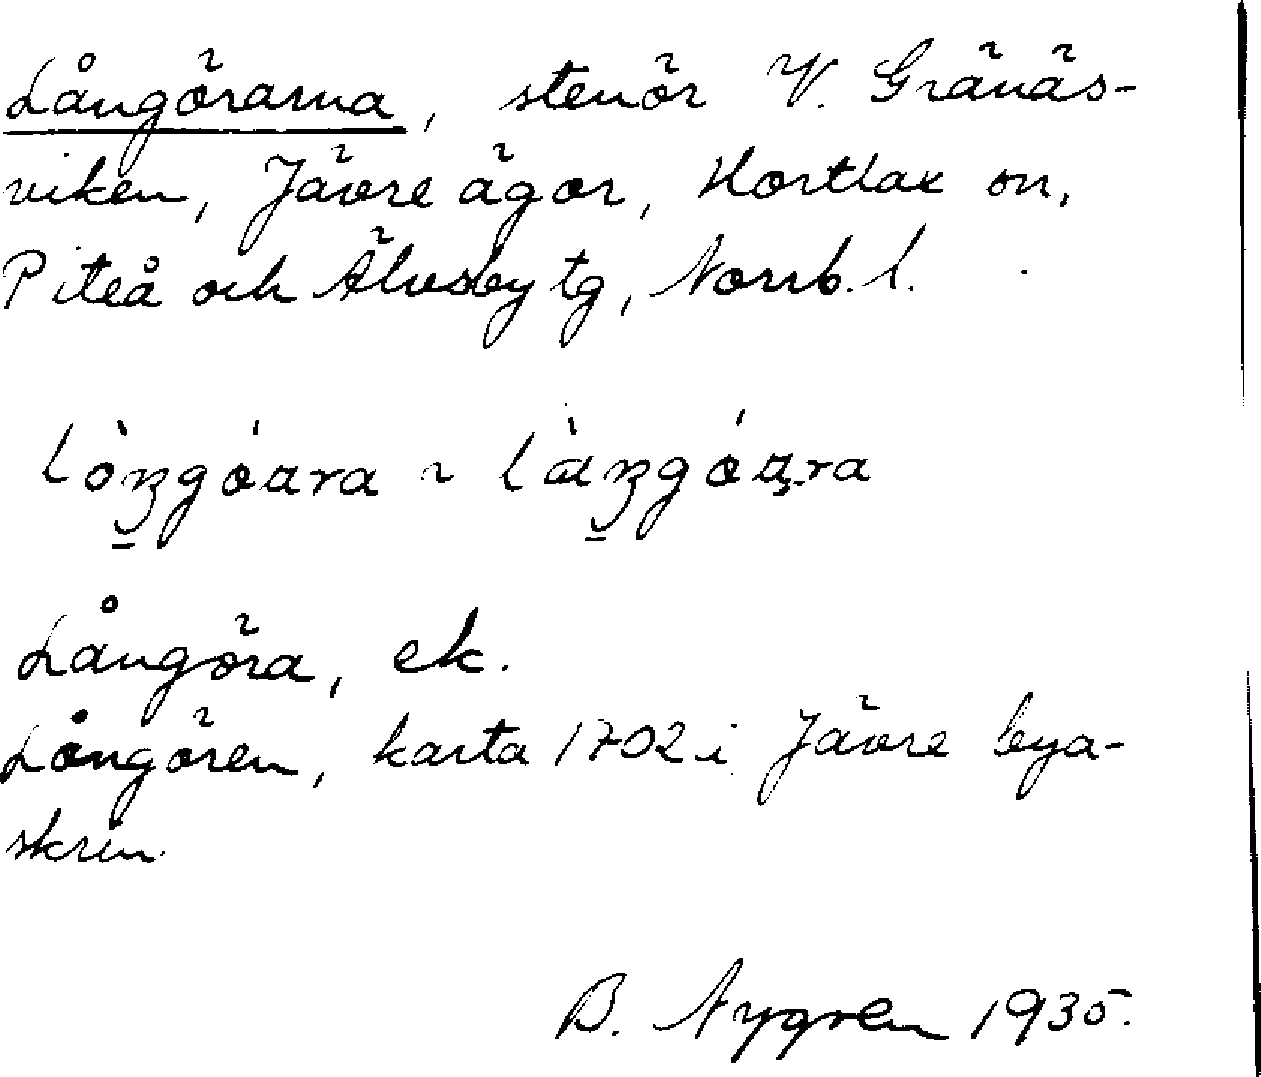 Långörarna, stenör V. Gränäs-
viken, Jävre ägor, Hortlax sn,
Piteå och Älvsby tg, Norrb. l.
Långöra, ek.
Långören, karta 1702 i Jävre bya-
skrin.
B. Nygren 1935.